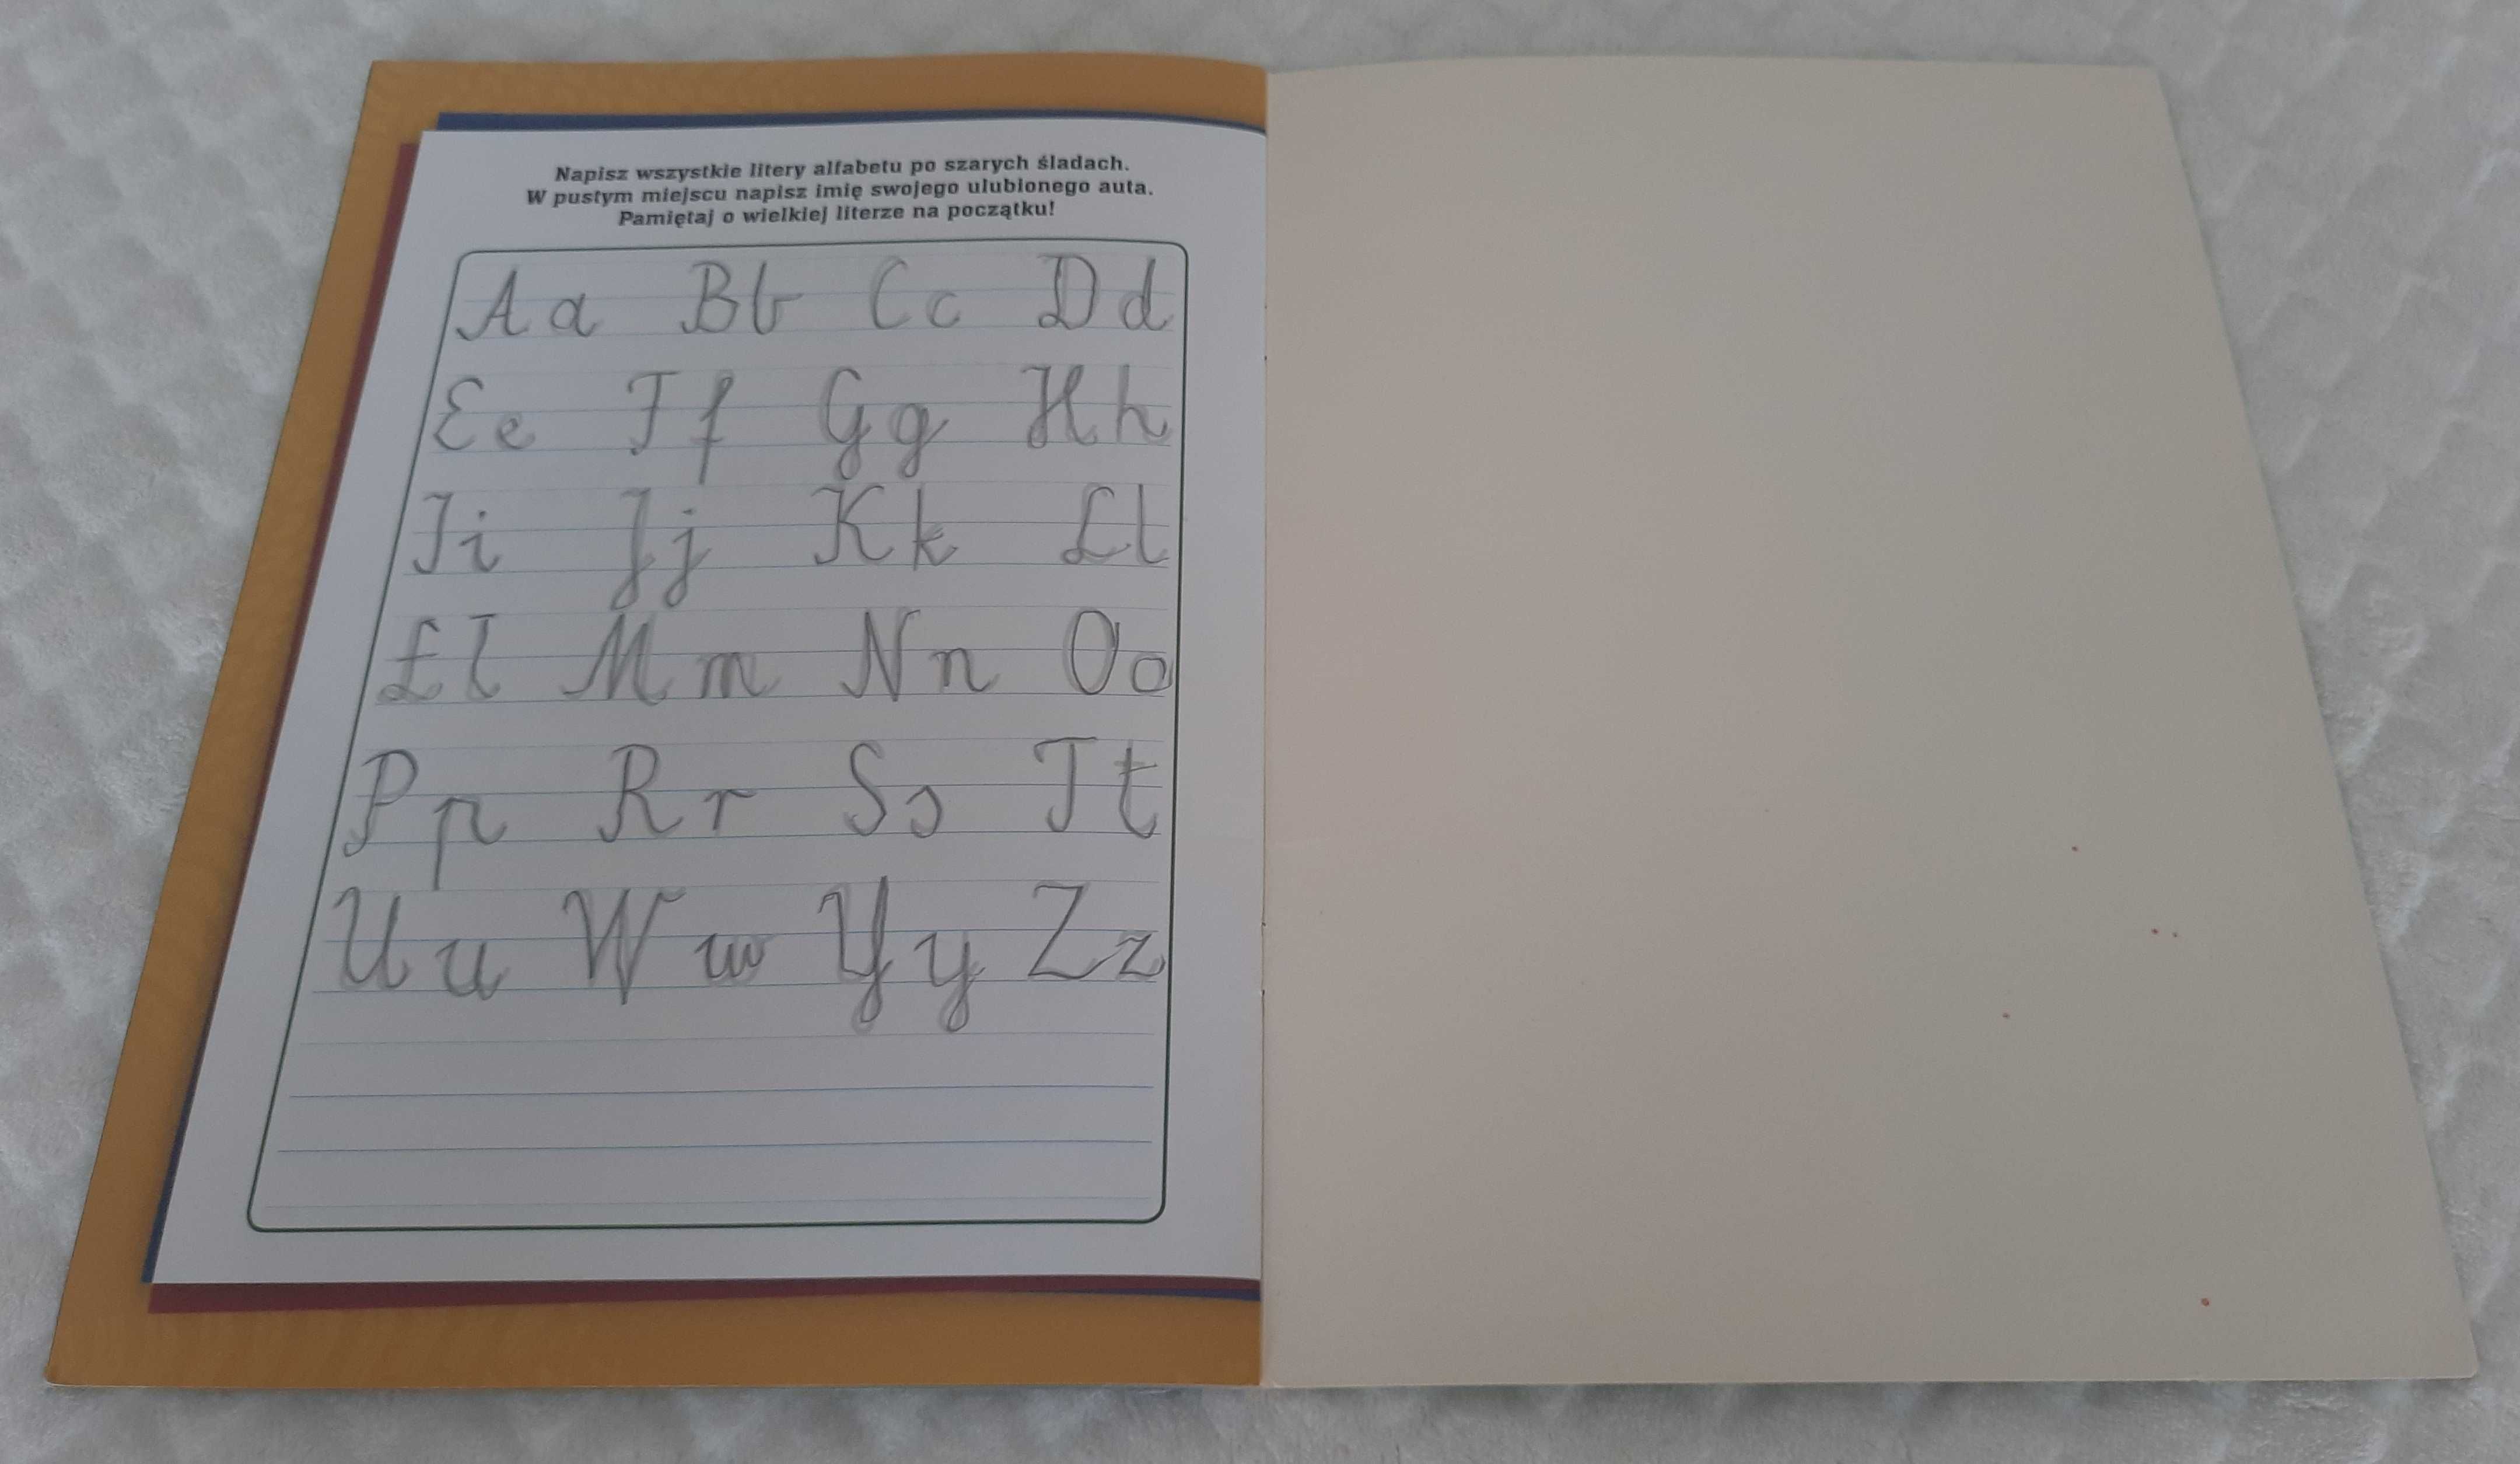 Napisz wszystkie litery alfabetu po szarych śladach.
W pustym miejscu napisz imię swojego ulubionego auta.
Pamiętaj o wielkiej literze na początku!
A a B b C c D d
E e F f G g H h
I i J j K k L l
Ł ł M m N n O o
P p R r S s T t
U u W w Y y Z z